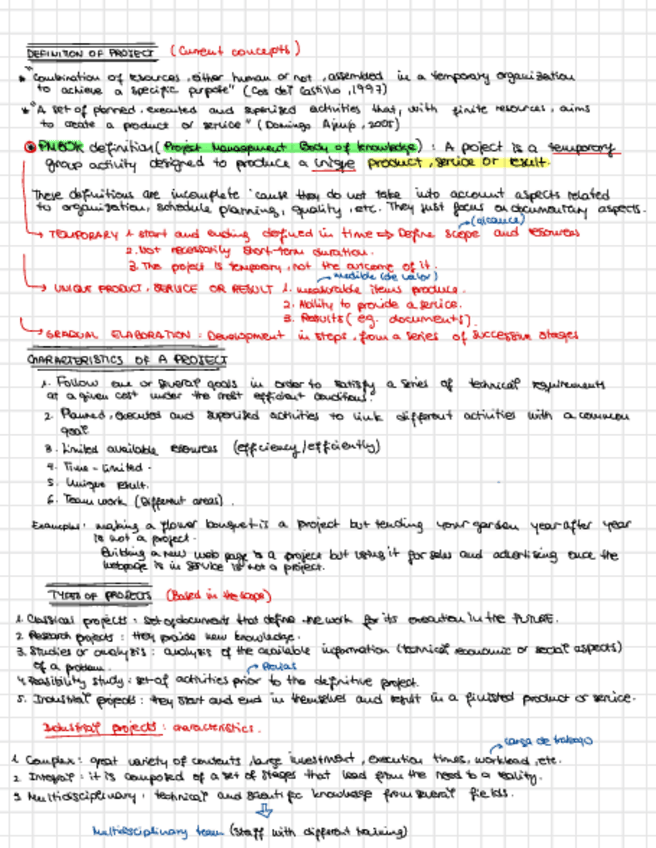 DEFINITION OF PROJECT (Current concepts)
* "Combination of resources, either human or not, assembled in a temporary organization
to achieve a specific purpose" (Cos del Castillo, 1997)
* "A set of planned, executed and supervised activities that, with finite resources, aims
to create a product or service" (Domingo Ajenjo, 2005)
PMBOK definition (Project Management Body of knowledge) : A project is a temporary
group activity designed to produce a unique product, service or result.
These definitions are incomplete 'cause they do not take into account aspects related
to organization, schedule planning, quality, etc. They just focus on documentary aspects.
(alcance)
→ TEMPORARY 1. start and ending defined in time ⇒ Define scope and resources
2. Not necessarily short-term duration.
3. The project is temporary, not the outcome of it.
medible (de valor)
→ UNIQUE PRODUCT, SERVICE OR RESULT 1. measurable items produce.
2. Ability to provide a service.
3. Results (eg. documents).
→ GRADUAL ELABORATION : Development in steps, from a series of successive stages
CHARACTERISTICS OF A PROJECT
1. Follow one or several goals in order to satisfy a series of technical requirements
at a given cost under the most efficient conditions.
2. Planned, executed and supervised activities to link different activities with a common
goal
3. Limited available resources (efficiency/efficiently)
4. Time-limited.
5. Unique result.
6. Team work (Different areas).
Examples: making a flower bouquet is a project but tending your garden year after year
is not a project.
Building a new web page is a project but using it for sales and advertising once the
webpage is in service is not a project.
TYPES OF PROJECTS (Based in the scope)
1. Classical projects : set of documents that define the work for its execution in the FUTURE.
2. Research projects : they provide new knowledge.
3. Studies or analysis : analysis of the available information (technical economic or social aspects)
of a problem.
Previas
4. Feasibility study : set of activities prior to the definitive project.
5. Industrial projects : they start and end in themselves and result in a finished product or service.
Industrial projects : characteristics.
carga de trabajo
1. Complex : great variety of contents, large investment, execution times, workload, etc.
2. Integral : it is composed of a set of stages that lead from the need to a reality.
3. Multidisciplinary : technical and scientific knowledge from several fields.
Multidisciplinary team (staff with different training)